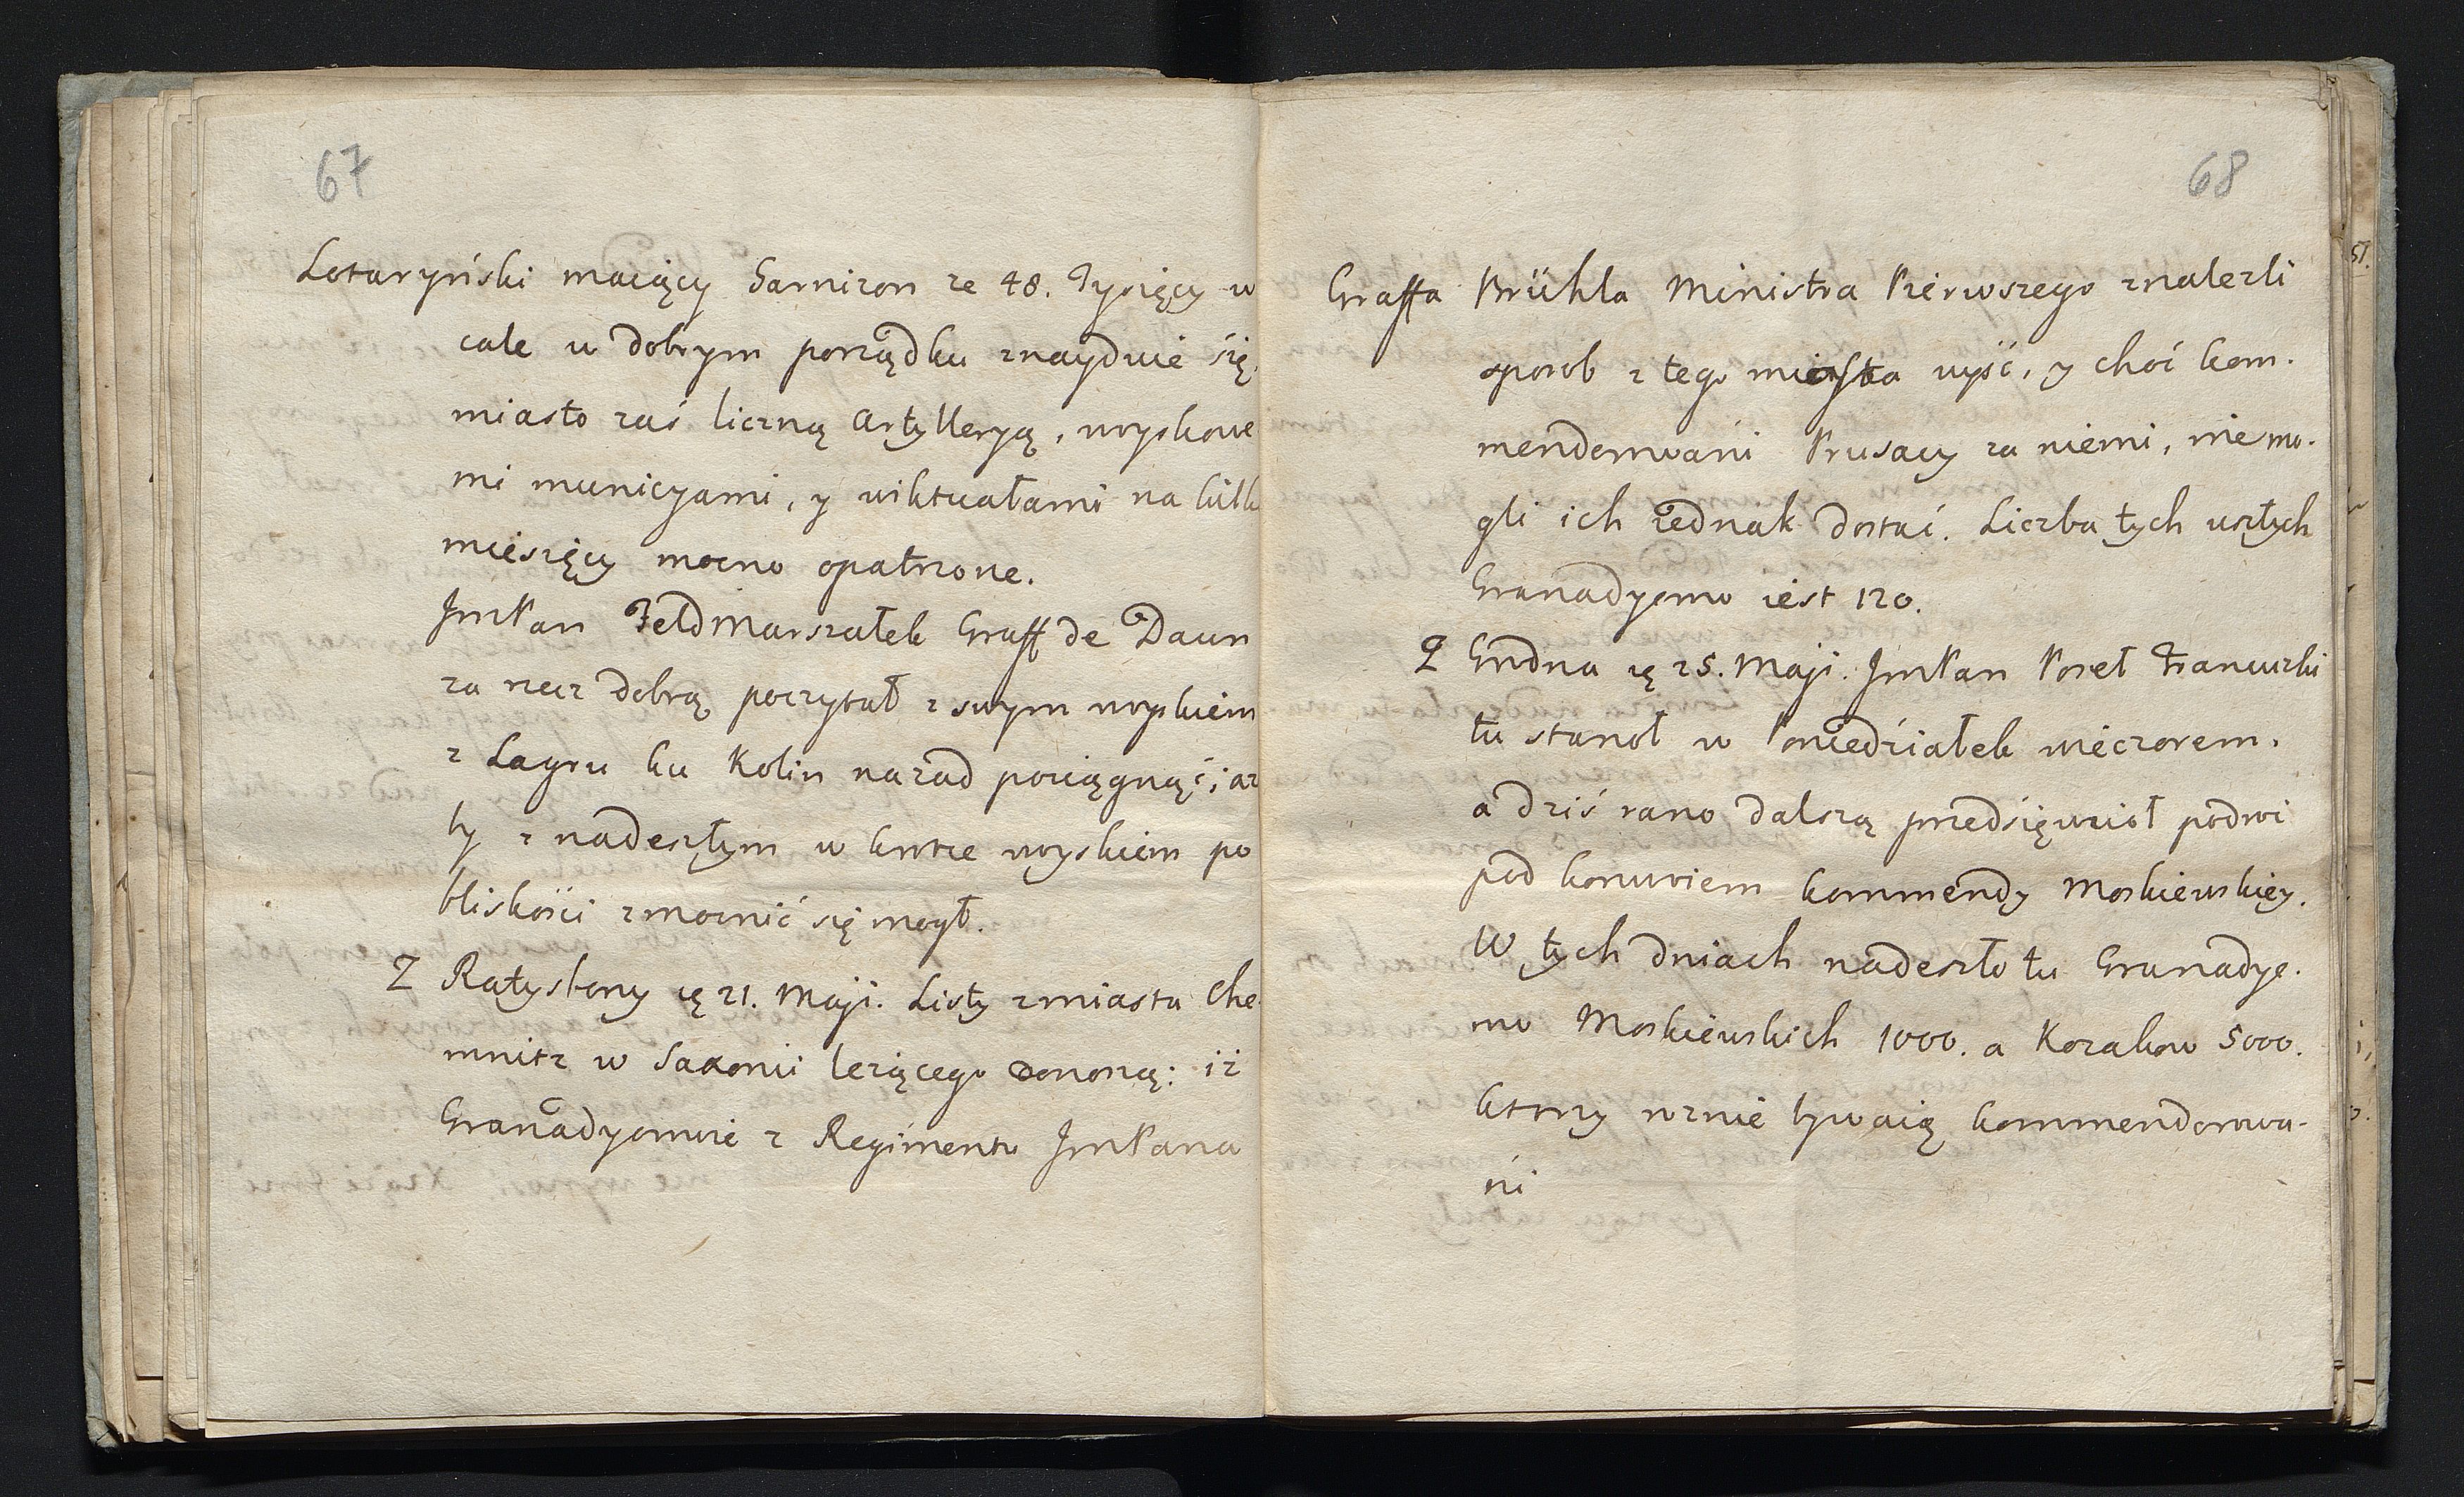 67
Lotaryński maiący Garnizon ze 48. Tysięcy w
cale w dobrym porządku znayduie się,
miasto zaś liczną Artylleryą, woyskowe
mi municyami, y wiktuałami na kilk
miesięcy mocno opatrzone.
JmPan FeldMarszałek Graff de Daun
za rzecz dobrą poczytał z swym woyskiem
z Lagru ku Kolin nazad pociągnąć, aż
by z nadeszłym w krotce woyskiem po
bliskości zmocnić się mogł.
Z Ratysbony ię 21. Maji. Listy z miasta Che
mnitz w Saxonii leżącego donoszą: iż
Granadyerowie z Regimentu JmPana
68
Graffa Brühla Ministra Pierwszego znalezli
sposob z tego miasta wyść, y choć kom.
menderowani Prusacy za niemi, nie mo.
gli ich iednak dostać. Liczba tych uszłych
Granadyerow iest 120.
Z Grodna ię 25. Maji. JmPan Poseł Francuzki
tu stanoł w Poniedziałek wieczorem.
a dziś rano dalszą przedsięwzioł podroż
pod konwoiem kommendy Moskiewskiey.
W tych dniach nadeszło tu Granadye.
row Moskiewskich 1000. a Kozakow 5000.
ktorzy roznie bywaią kommenderowa-
ni